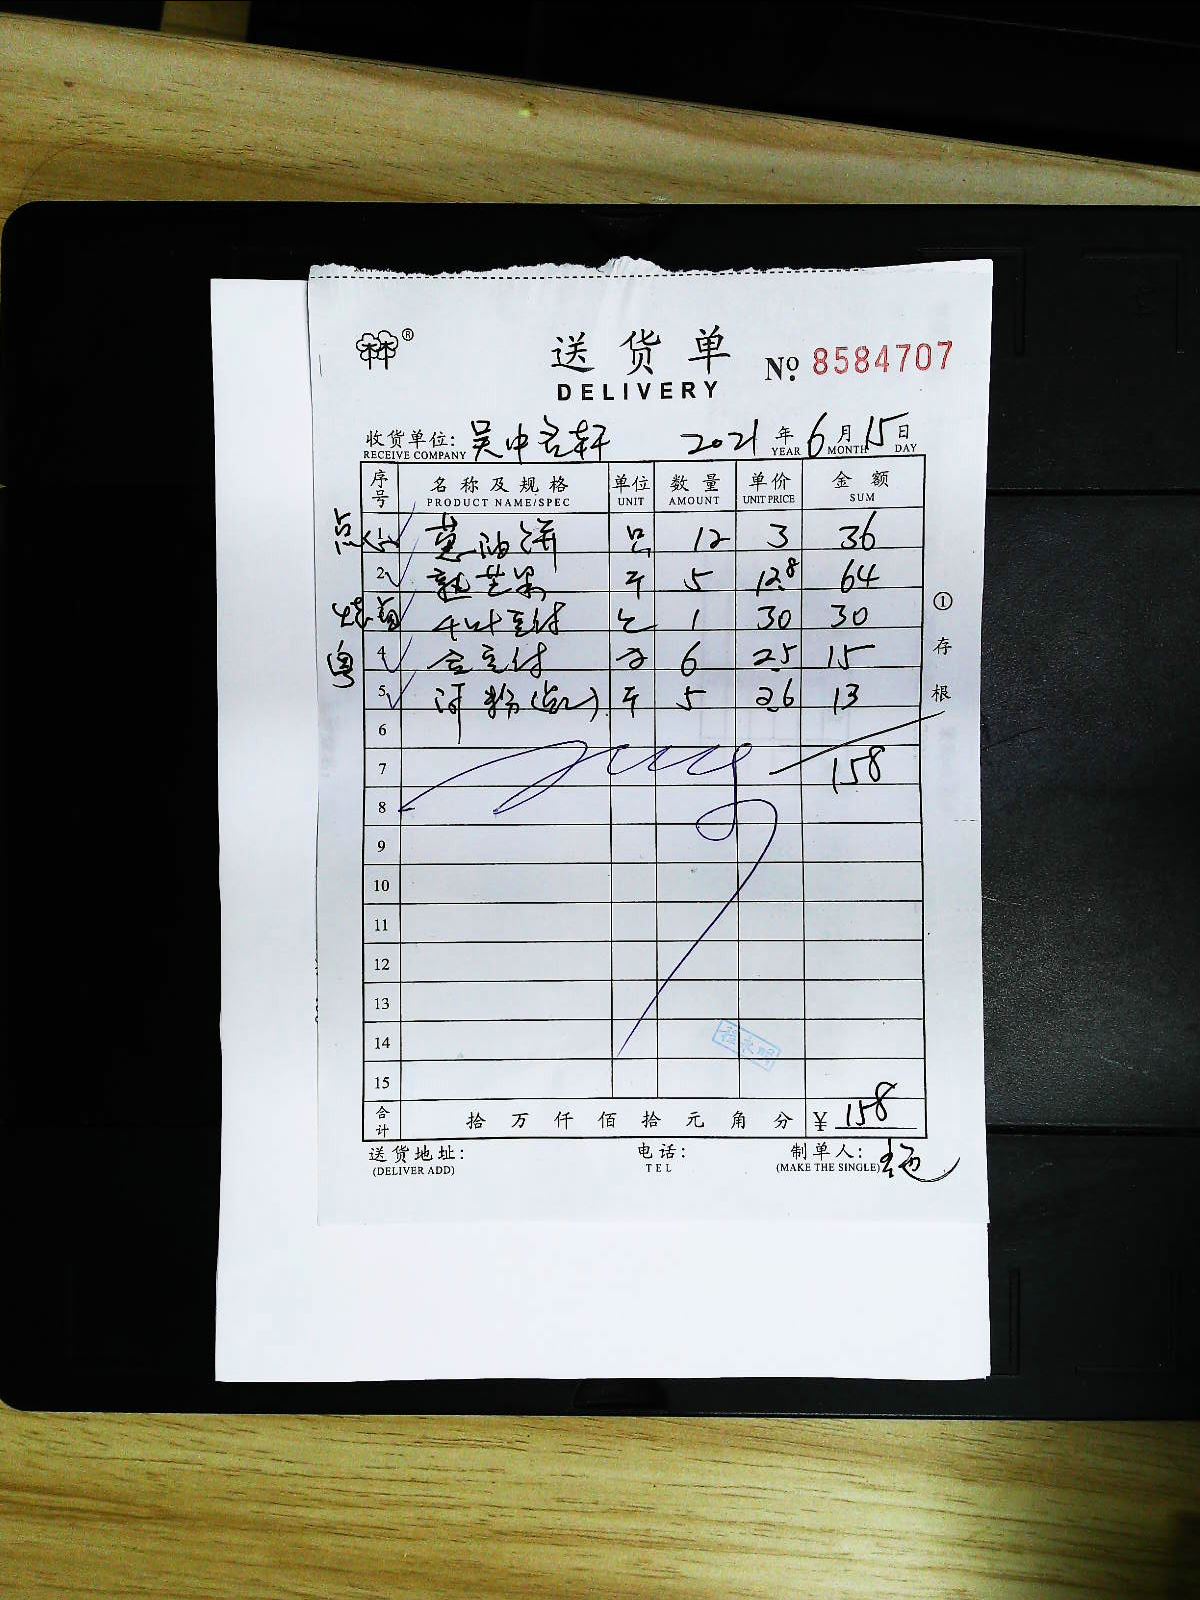 林®
送货单
DELIVERY
No. 8584707
收货单位: 吴中名轩 2021 年 6 月 15 日
RECEIVE COMPANY YEAR MONTH DAY
序号 名称及规格 单位 数量 单价 金额
PRODUCT NAME/SPEC UNIT AMOUNT UNIT PRICE SUM
点心 1 葱油饼 只 12 3 36
2 熟芒果 斤 5 12.8 64
3 千叶豆付 1 30 30
粤 4 合豆付 6 2.5 15
5 河粉 斤 5 2.6 13
6
7 158
8
9
10
11
12
13
14
15
合计 拾 万 仟 佰 拾 元 角 分 ¥ 158
送货地址: 电话: 制单人:
(DELIVER ADD) TEL (MAKE THE SINGLE)
① 存根